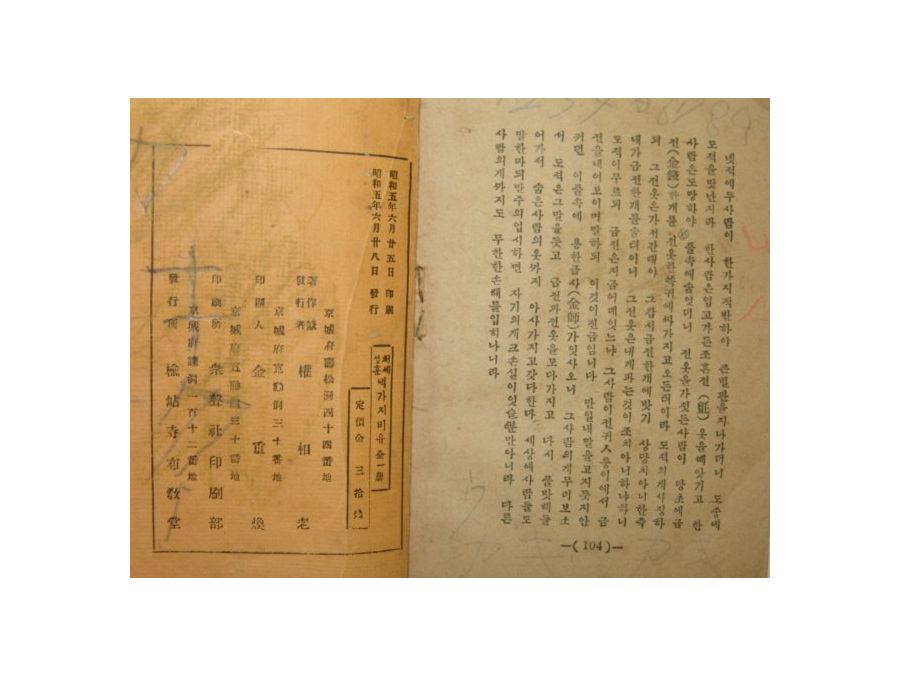 넷적에두사람이 한가지작반하야 큰벌판을지나가더니 도중에
도적을맛난지라 한사람은입고가든조흔전(氈)옷을빼앗기고 한
사람은도망하야 풀속에숨엇더니 전옷을가젓든사람이 당초에금
전(金錢)한개를 전옷한쪽귀에싸가지고오든터이라 도적의게사정하
되 그전옷은가치간대야 그잡시금전한개에밧기 상당치아니한즉
내가금전한개를줄터이니 그전옷은내게파는것이조치아니하냐하니
도적이무르되 금전은지금어대잇느냐 그사람이전귀ㅅ퉁이에서 금
전을내여보이며말하되 이것이전금입니다 만일내말을고지듯지안
커던 이풀속에 용한금사(金師)가잇사오니 그사람의게무러보소
서 도적은그말을듯고 금전과전옷을모다가지고 다시 풀밧헤들
어가서 숨은사람의옷까지 아사가지고갓다한다 세상에사람들도
말한마듸반주의업시하면 자기의게크손실이잇슬뿐만아니라 다른
사람의게까지도 무한한손해를입히나니라
—( 104 )—
昭和五年六月廿五日 印刷
昭和五年六月廿八日 發行
백가지비유 全一冊
定價金 三拾錢
京城府壽松洞四十四番地
著作兼
發行者 權相老
京城府寬勳洞三十番地
印刷人 金重煥
京城府寬勳洞三十番地
印刷所 衆聲社印刷部
京城府諫洞一百十二番地
發行所 楡岾寺布敎堂